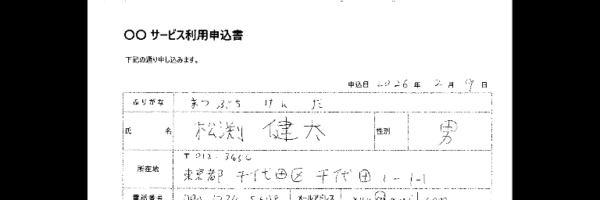 〇〇 サービス利用申込書
下記の通り申し込みます。
申込日 2026 年 2 月 9 日
ふりがな まつ ぶち けん だ
氏 名 松渕 健太 性別 男
〒012-3456
所在地 東京都 千代田区 千代田 1-1-1
電話番号 メールアドレス